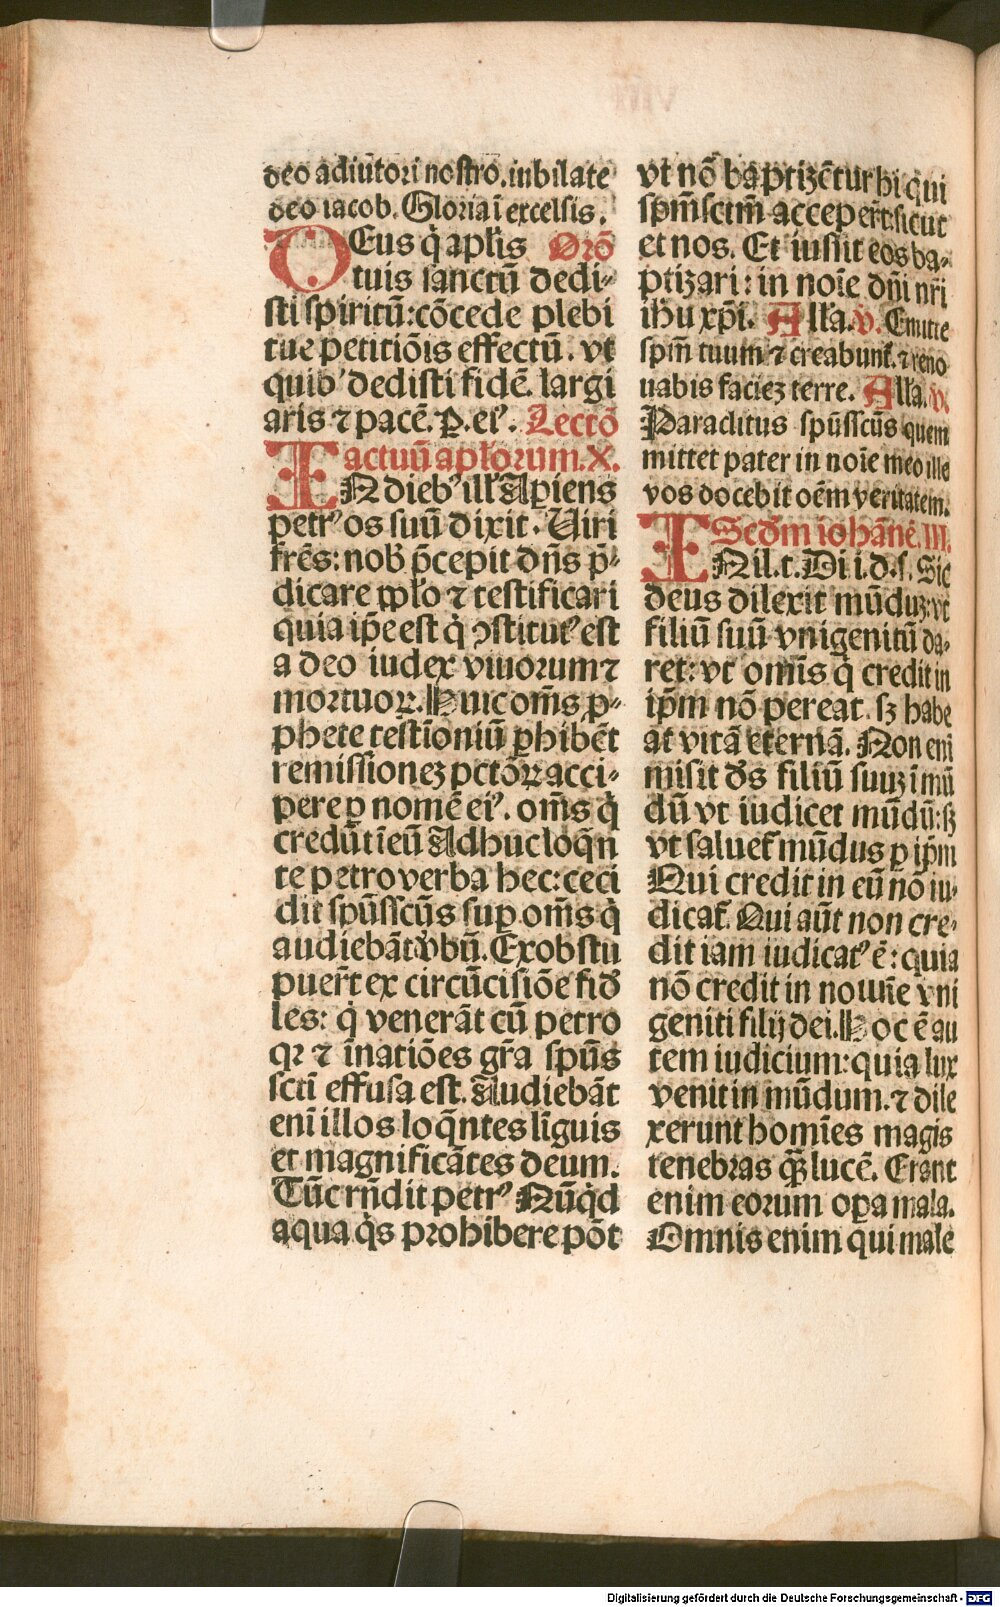 deo adiūtori nostro. iubilate
deo iacob. Gloria ī excelsis.
DEus q̇ apl̄is Orō
tuis sanctū dedi-
sti spiritū: cōcede plebi
tue petitiōis effectū. vt
quibꝰ dedisti fidē. largi
aris ⁊ pacē. P. eiꝰ. Lectō
actuū apl̄orum. X.
IN diebꝰ ill' Apiens
petrꝰ os suū dixit. Uiri
fr̄es: nob̄ p̄cepit dn̄s p̄-
dicare pplo ⁊ testificari
quia ip̄e est q̇ ꝯstitutꝰ est
a deo iudex viuorum ⁊
mortuoꝝ. Huic om̄s ꝓ-
phete testīoniū ꝑhibēt
remissionez pctōꝝ acci-
pere ꝑ nomē eiꝰ. om̄s q̇
credūt ī eū Adhuc loq̄n
te petro verba hec: ceci
dit spūssc̄us suꝑ om̄s q̇
audiebāt v̄bū. Et obstu
puer̄t ex circūcisiōe fid
les: q̇ venerāt cū petro
qꝛ ⁊ ī natiōes gr̄a spūs
sct̄i effusa est. Audiebāt
enī illos loq̄ntes līguis
et magnificātes deum.
Tūc rn̄dit petrꝰ Nūq̇d
aqua q̇s prohibere pōt
vt nō baptizētur hi qui
spm̄sctm̄ acceper̄t: sicut
et nos. Et iussit eos ba-
ptizari: in noīe dn̄i nr̄i
ihū xp̄i. All'a. V. Emitte
spm̄ tuum ⁊ creabunt̄. ⁊ reno
uabis faciez terre. All'a. V.
Paraclitus spūssc̄us quem
mittet pater in noīe meo ille
vos docebit oēm veritatem.
Scd̄m iohānē. III.
IN il. t. Di i. d. s. Sic
deus dilexit mūduz: vt
filiū suū vnigenitū da-
ret: vt om̄is q̇ credit in
ip̄m nō pereat. sꝫ habe
at vitā eternā. Non eni
misit ds̄ filiū suuz ī mū
dū vt iudicet mūdū: sꝫ
vt saluet̄ mūdus ꝑ ip̄m
Qui credit in eū nō iu-
dicat̄. Qui aūt non cre-
dit iam iudicatꝰ ē: quia
nō credit in nomīe vni
geniti filij dei. Hoc ē au
tem iudicium: quia lux
venit in mūdum. ⁊ dile
xerunt homīes magis
tenebras qꝫ̄ lucē. Erant
enim eorum oꝑa mala.
Omnis enim qui male
Digitalisierung gefördert durch die Deutsche Forschungsgemeinschaft - DFG